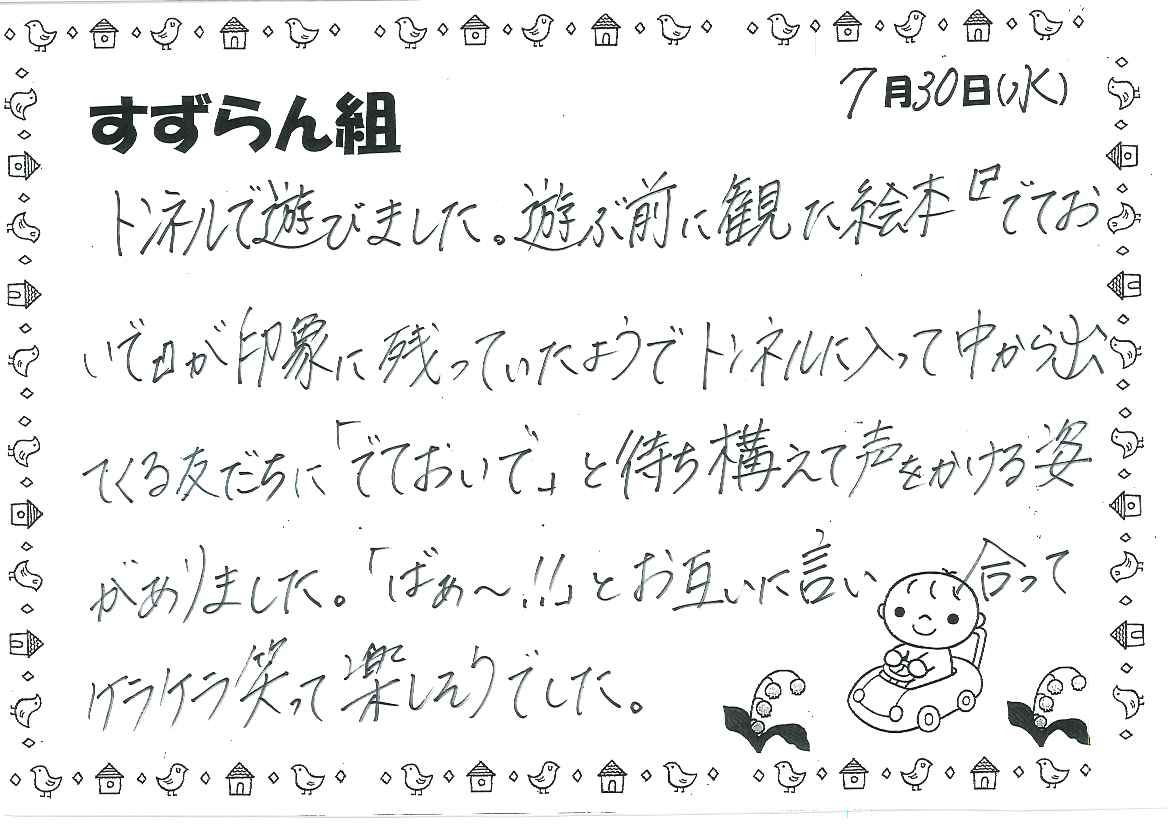 7月30日(水)
すずらん組
トンネルで遊びました。遊ぶ前に観た絵本『でてお
いで』が印象に残っていたようでトンネルに入って中から出
てくる友だちに「でておいで」と待ち構えて声をかける姿
がありました。「ばぁ〜!!」とお互いに言い合って
ケラケラ笑って楽しそうでした。